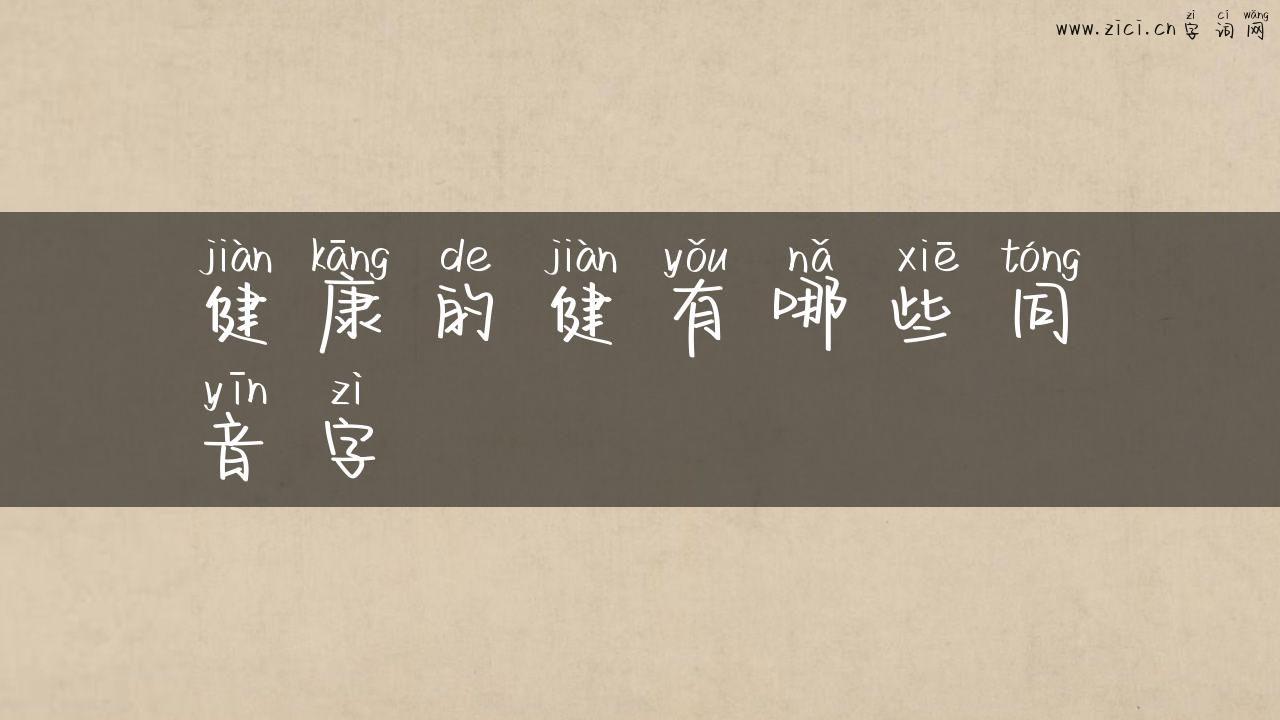 zì cí wǎng
www.zici.cn 字词网
jiàn kāng de jiàn yǒu nǎ xiē tóng
健康的健有哪些同
yīn zì
音字